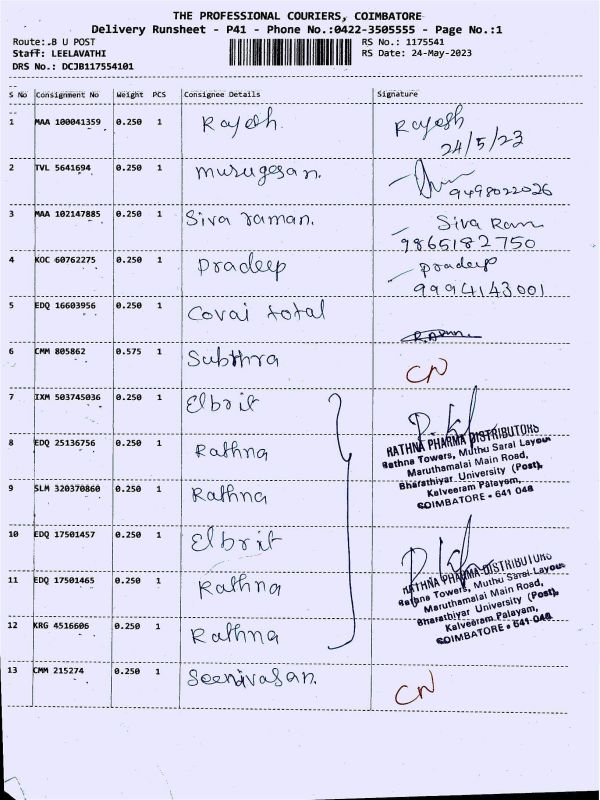 THE PROFESSIONAL COURIERS, COIMBATORE
Delivery Runsheet - P41 - Phone No.:0422-3505555 - Page No.:1
Route:.B U POST
RS No.: 1175541
Staff: LEELAVATHI
RS Date: 24-May-2023
DRS No.: DCJB117554101
S No Consignment No Weight PCS Consignee Details Signature
1 MAA 100041359 0.250 1 Rajesh. Rajesh
24/5/23
2 TVL 5641694 0.250 1 murugesan.
9498022026
3 MAA 102147885 0.250 1 Siva raman. Siva Ram
9865182750
4 KOC 60762275 0.250 1 Pradeep pradeep
9994143001
5 EDQ 16603956 0.250 1 Covai total
6 CMM 805862 0.575 1 Subthra CN
7 IXM 503745036 0.250 1 Elbrit
8 EDQ 25136756 0.250 1 Rathna
RATHNA PHARMA DISTRIBUTORS
Rathna Towers, Muthu Sarai Layout
Maruthamalai Main Road,
Bharathiyar University (Post),
Kalveeram Palayam,
COIMBATORE - 641 046
9 SLM 320370860 0.250 1 Rathna
10 EDQ 17501457 0.250 1 Elbrit
11 EDQ 17501465 0.250 1 Rathna
RATHNA PHARMA DISTRIBUTORS
Rathna Towers, Muthu Sarai Layout
Maruthamalai Main Road,
Bharathiyar University (Post),
Kalveeram Palayam,
COIMBATORE - 641 046
12 KRG 4516606 0.250 1 Rathna
13 CMM 215274 0.250 1 Seenivasan. CN